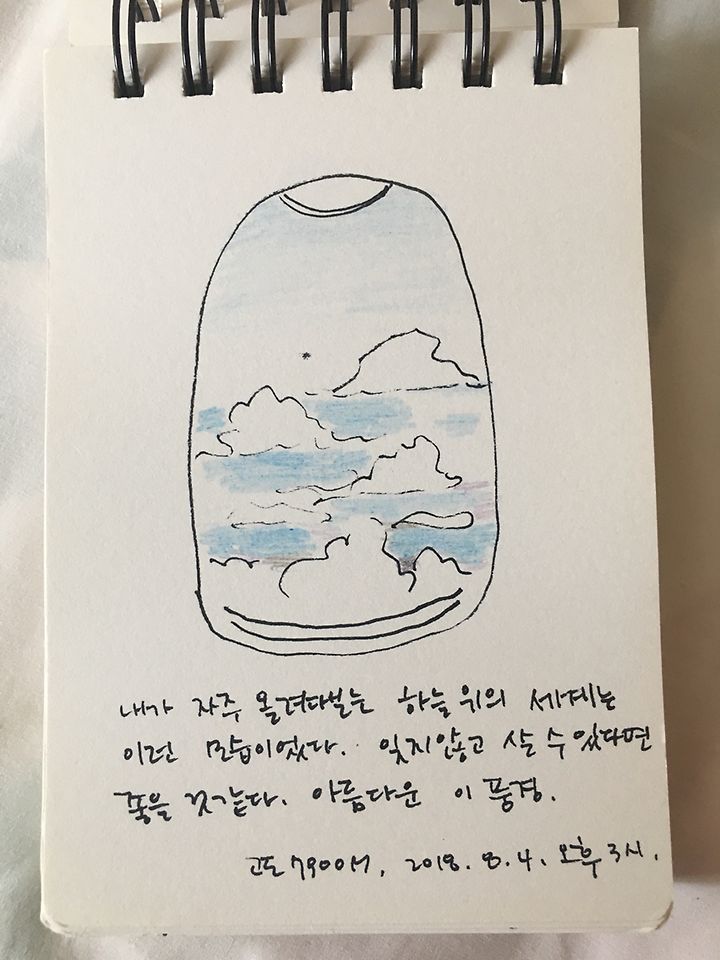 내가 자주 올려다보는 하늘 위의 세계는
이런 모습이었다. 잊지않고 살 수 있다면
좋을 것같다. 아름다운 이 풍경.
고도 7900M, 2018. 8. 4. 오후 3시.